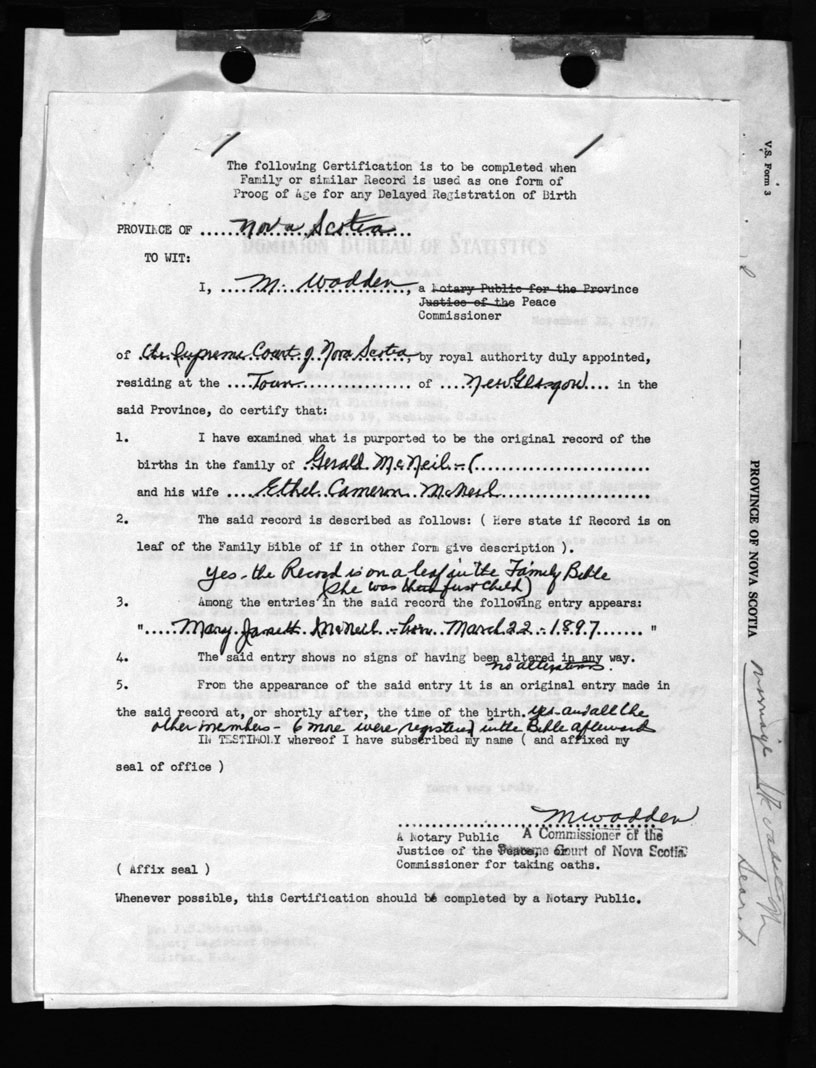 The following Certification is to be completed when
Family or similar Record is used as one form of
Proog of Age for any Delayed Registration of Birth
PROVINCE OF ..... Nova Scotia ..
TO WIT:
I, .... M. Wadden ....., a Notary Public for the Province
Justice of the Peace
Commissioner
of the Supreme Court of Nova Scotia by royal authority duly appointed,
residing at the .... Town ................ of .... New Glasgow .... in the
said Province, do certify that:
1. I have examined what is purported to be the original record of the
births in the family of . Gerald McNeil - ( ..........................
and his wife .... Ethel Cameron McNeil ......................
2. The said record is described as follows: ( Here state if Record is on
leaf of the Family Bible of if in other form give description ).
Yes - the Record is on a leaf in the Family Bible
(She was their first child)
3. Among the entries in the said record the following entry appears:
"..... Mary Janett McNeil - born March 22 - 1897 ....... "
4. The said entry shows no signs of having been altered in any way.
no alterations.
5. From the appearance of the said entry it is an original entry made in
the said record at, or shortly after, the time of the birth. yes - and all the
other members - 6 more were registered in the Bible afterwards
IN TESTIMONY whereof I have subscribed my name ( and affixed my
seal of office )
M Wadden
A Notary Public A Commissioner of the
Justice of the Peace, or Supreme Court of Nova Scotia
( Affix seal ) Commissioner for taking oaths.
Whenever possible, this Certification should be completed by a Notary Public.
V.S. Form 3
PROVINCE OF NOVA SCOTIA
marriage
Search
DOMINION BUREAU OF STATISTICS
OTTAWA
November 22, 1957.
Yours very truly,
Deputy Registrar General,
Halifax, N.S.